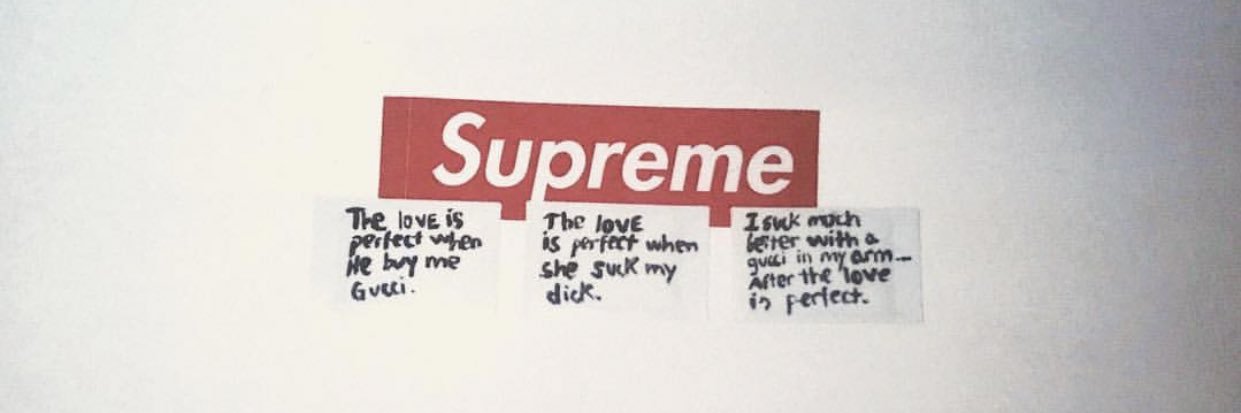 Supreme
The love is
perfect when
He buy me
Gucci.
The love
is perfect when
she suck my
dick.
I suck much
better with a
gucci in my arm_
After the love
is perfect.